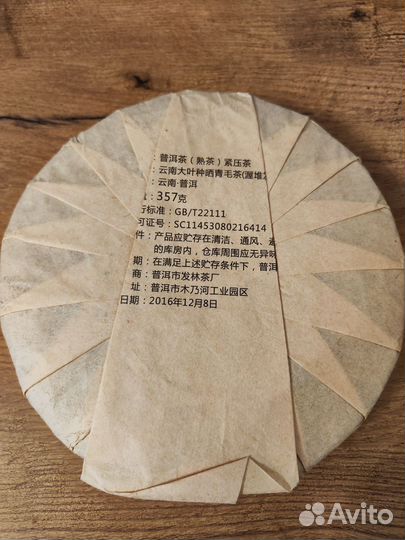 ：普洱茶（熟茶）紧压茶
：云南大叶种晒青毛茶(渥堆
：云南·普洱
：357克
行标准：GB/T22111
可证号：SC11453080216414
件：产品应贮存在清洁、通风、
的库房内，仓库周围应无异味
期：在满足上述贮存条件下，普洱
商：普洱市发林茶厂
址：普洱市木乃河工业园区
日期：2016年12月8日
Avito